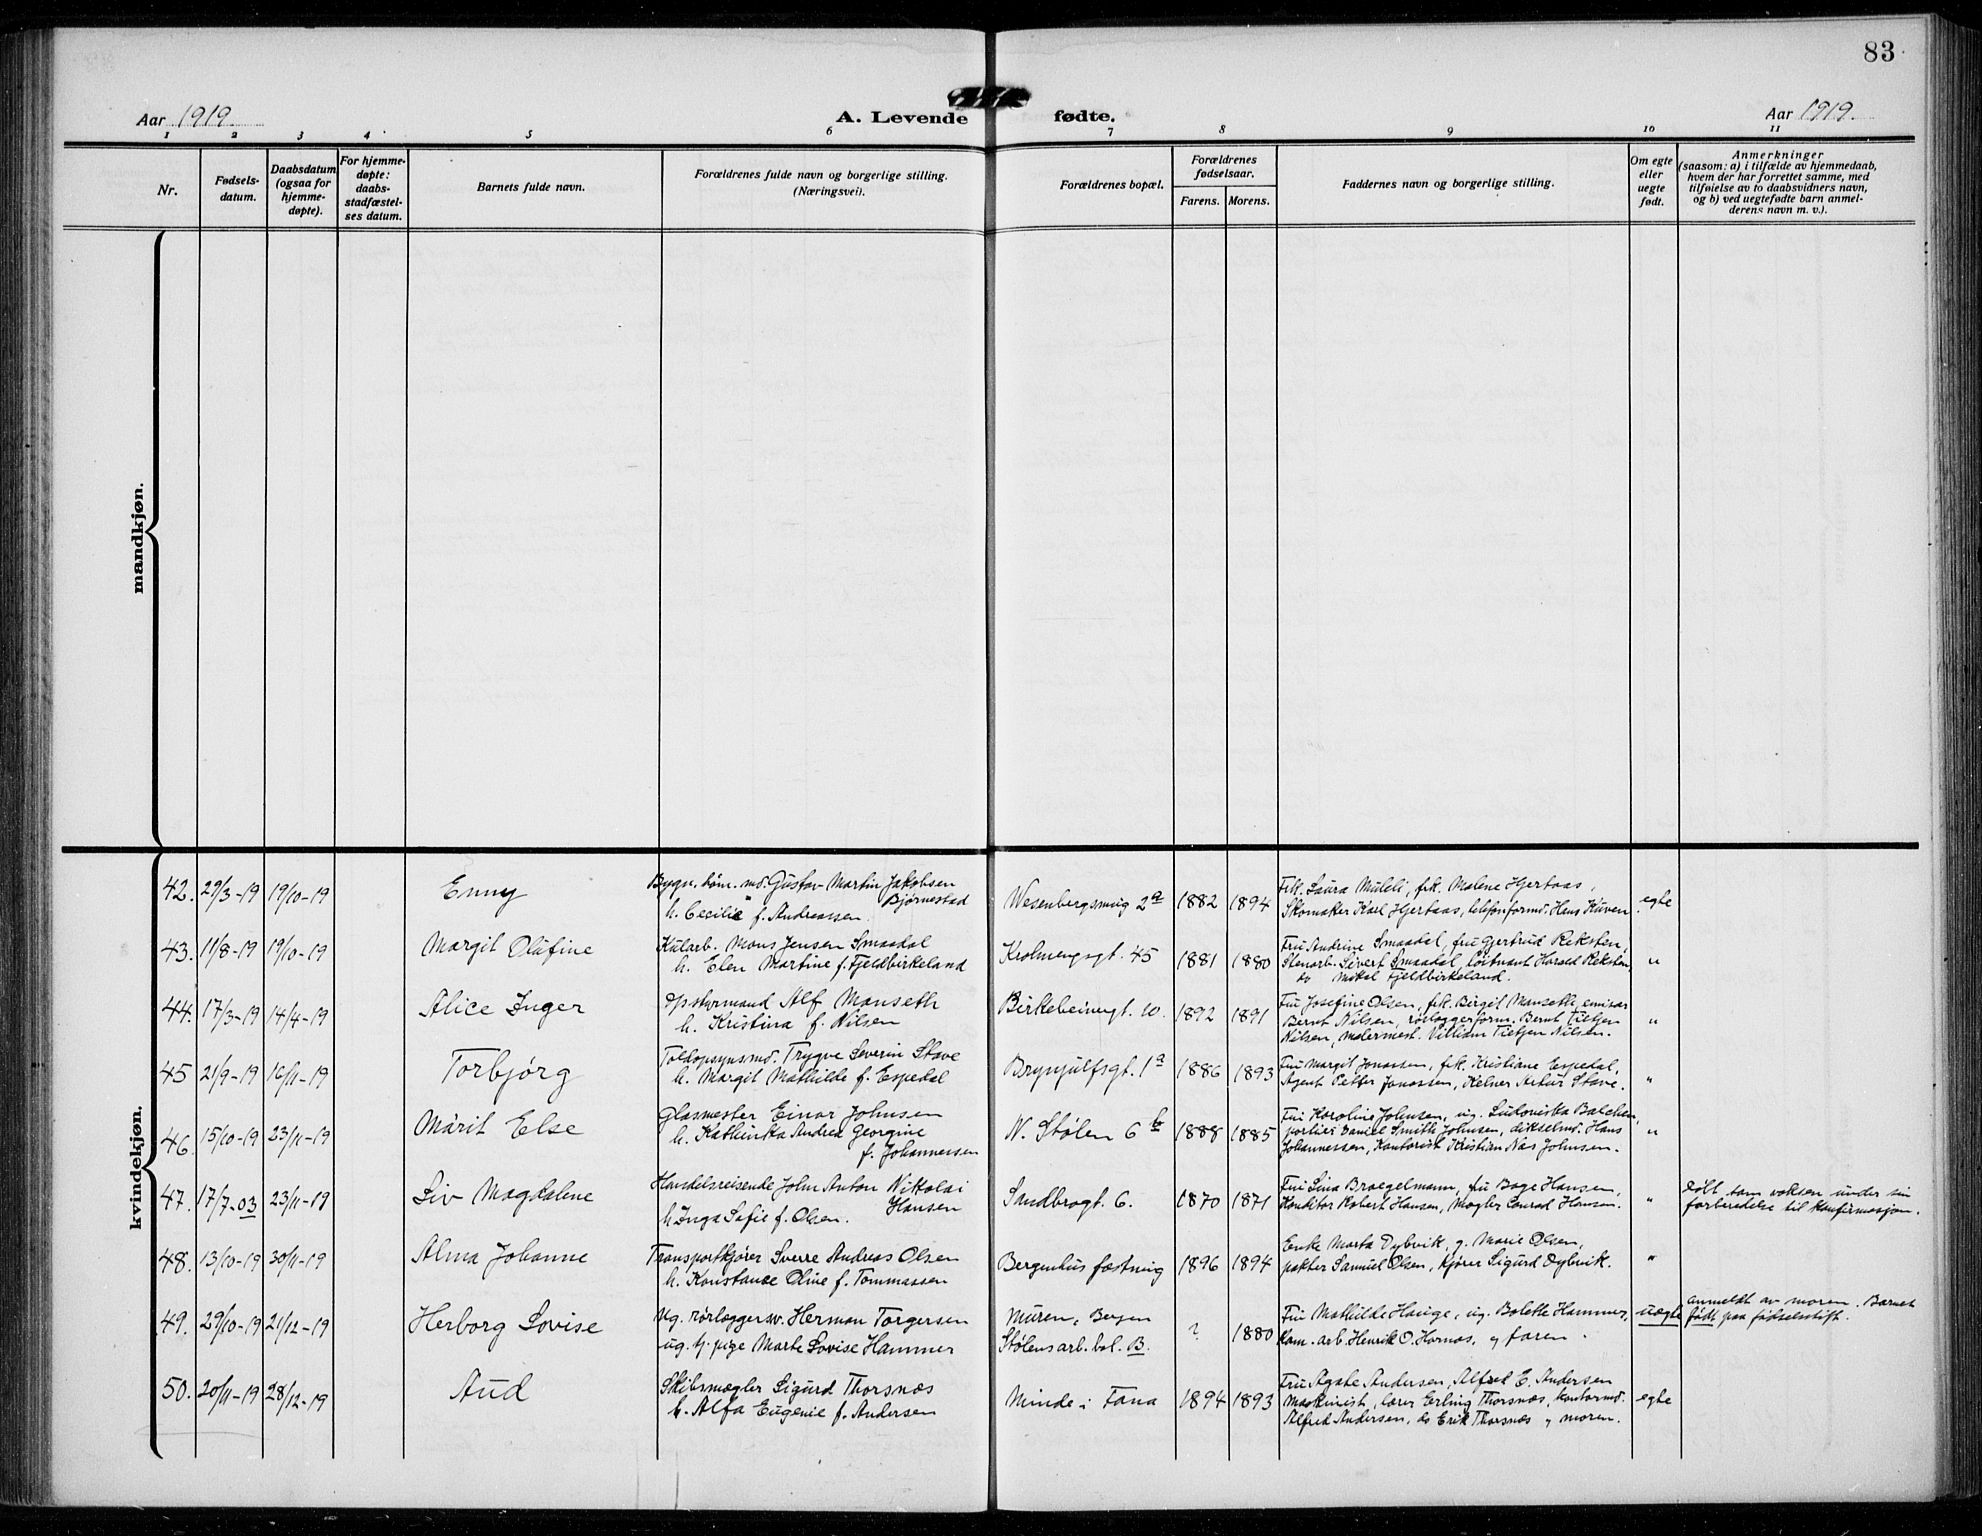 83
Aar 1919.
A. Levende fødte.
Aar 1919.
1 2 3 4 5 6 7 8 9 10 11
Nr.
Fødsels-
datum.
Daabsdatum
(ogsaa for
hjemme-
døpte).
For hjemme-
døpte:
daabs-
stadfæstel-
ses datum.
Barnets fulde navn.
Forældrenes fulde navn og borgerlige stilling.
(Næringsvei).
Forældrenes bopæl.
Forældrenes
fødselsaar.
Farens. Morens.
Faddernes navn og borgerlige stilling.
Om egte
eller
uegte
født.
Anmerkninger
(saasom: a) i tilfælde av hjemmedaab,
hvem der har forrettet samme, med
tilføielse av to daabsvidners navn,
og b) ved uegtefødte barn anmel-
derens navn m. v.).
mandkjøn.
kvindekjøn.
42. 29/3-19 19/10-19 Enny
Bygn. tøm. md. Gustav Martin Jakobsen
Bjørnestad
h. Cecilie f. Andreassen.
Wesenbergsmug 2a 1882 1894
Frk. Laura Muleli, frk. Malene Hjertaas,
Skomaker Karl Hjertaas, telefonformd. Hans Kuven.
egte
43. 11/8-19 19/10-19 Margit Olufine
Kularb. Mons Jensen Smaadal
h. Elen Martine f. Fjeldbirkeland
Krohnengsgt. 45 1881 1880
Fru Andrine Smaadal, fru Gjertrud Reksten,
Stenarb. Sivert Smaadal, Løitnant Harald Reksten,
do Mikal Fjeldbirkeland.
"
44. 17/3-19 14/4-19 Alice Inger
Opstyrmand Alf Manseth
h. Kristina f. Nilsen
Birkebeinergt. 10. 1892 1891
Fru Josefine Olsen, frk. Birgit Manseth, emisær
Bernt Nilsen, rørlæggerform. Bernt Tietjen
Nilsen, Malermest. Villiam Tietjen Nilsen.
"
45 21/9-19 16/11-19 Torbjørg
Toldopsynsmd. Trygve Severin Stave
h. Margit Mathilde f. Espedal
Brynjulfsgt. 1a 1886 1893
Fru Margit Jonassen, frk. Kristiane Espedal,
Agent Petter Jonassen, Kelner Artur Stave.
"
46. 15/10-19 23/11-19 Märit Else
Glasmester Einar Johnsen
h. Kathinka Andrea Georgine
f. Johannessen
N. Stølen 6 b 1888 1885
Fru Karoline Johnsen, ug. Ludovikka Balchen,
portier Daniel Smith Johnsen, dikselmd. Hans
Johannessen, Kontorist Kristian Nas Johnsen.
"
47. 17/7-03 23/11-19 Liv Magdalene
Handelsreisende John Anton Nikolai
Hansen
h. Inga Sofie f. Olsen.
Sandbrogt. 6. 1870 1871
Fru Lina Braegelmann, fru Bage Hansen,
Konditor Robert Hansen, Mægler Conrad Hansen.
"
Døbt som voksen under sin
forberedelse til konfirmasjon.
48. 13/10-19 30/11-19 Alma Johanne
Transportkjører Sverre Andreas Olsen
h. Konstance Oline f. Tommassen
Bergenhus fæstning 1896 1894
Enke Marta Dybvik, g. Marie Olsen,
pakter Samuel Olsen, Kjører Sigurd Dybvik.
"
49. 29/10-19 21/12-19 Herborg Lovise
Ug. rørlæggersv. Herman Torgersen
ug. tj. pige Marte Lovise Hammer
Muren, Bergen
Stølens arb. bol. B.
? 1880
Fru Mathilde Hauge, ug. Bolette Hammer,
Kom. arb. Henrik O. Hornes, og faren.
uegte
anmeldt av moren. Barnet
født paa fødselsstift.
50. 20/11-19 28/12-19 Aud
Skibsmægler Sigurd Thorsnæs
h. Alfa Eugenie f. Andersen
Minde i Fana 1894 1893
Fru Agate Andersen, Alfred E. Andersen
Maskinist, lærer Erling Thorsnæs, kontormd.
Alfred Andersen, do Erik Thorsnæs og moren.
egte